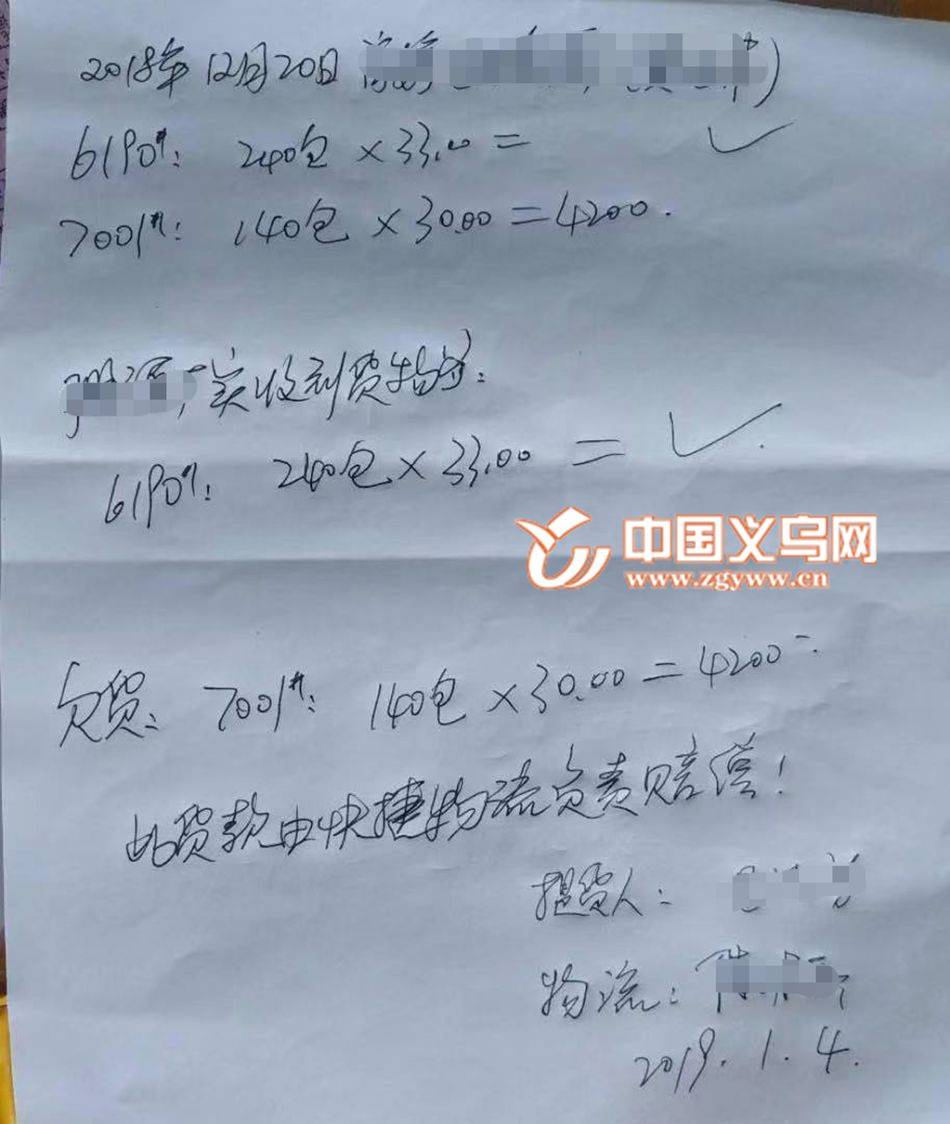 2018年12月20日
6190#: 240包×33.00=
7001#: 140包×30.00=4200.
实收到货物为:
6190#: 240包×33.00 =
中国义乌网
www.zgyww.cn
欠货: 7001#: 140包×30.00=4200-.
此货款由快捷物流负责赔偿!
提货人:
物流:
2019.1.4.